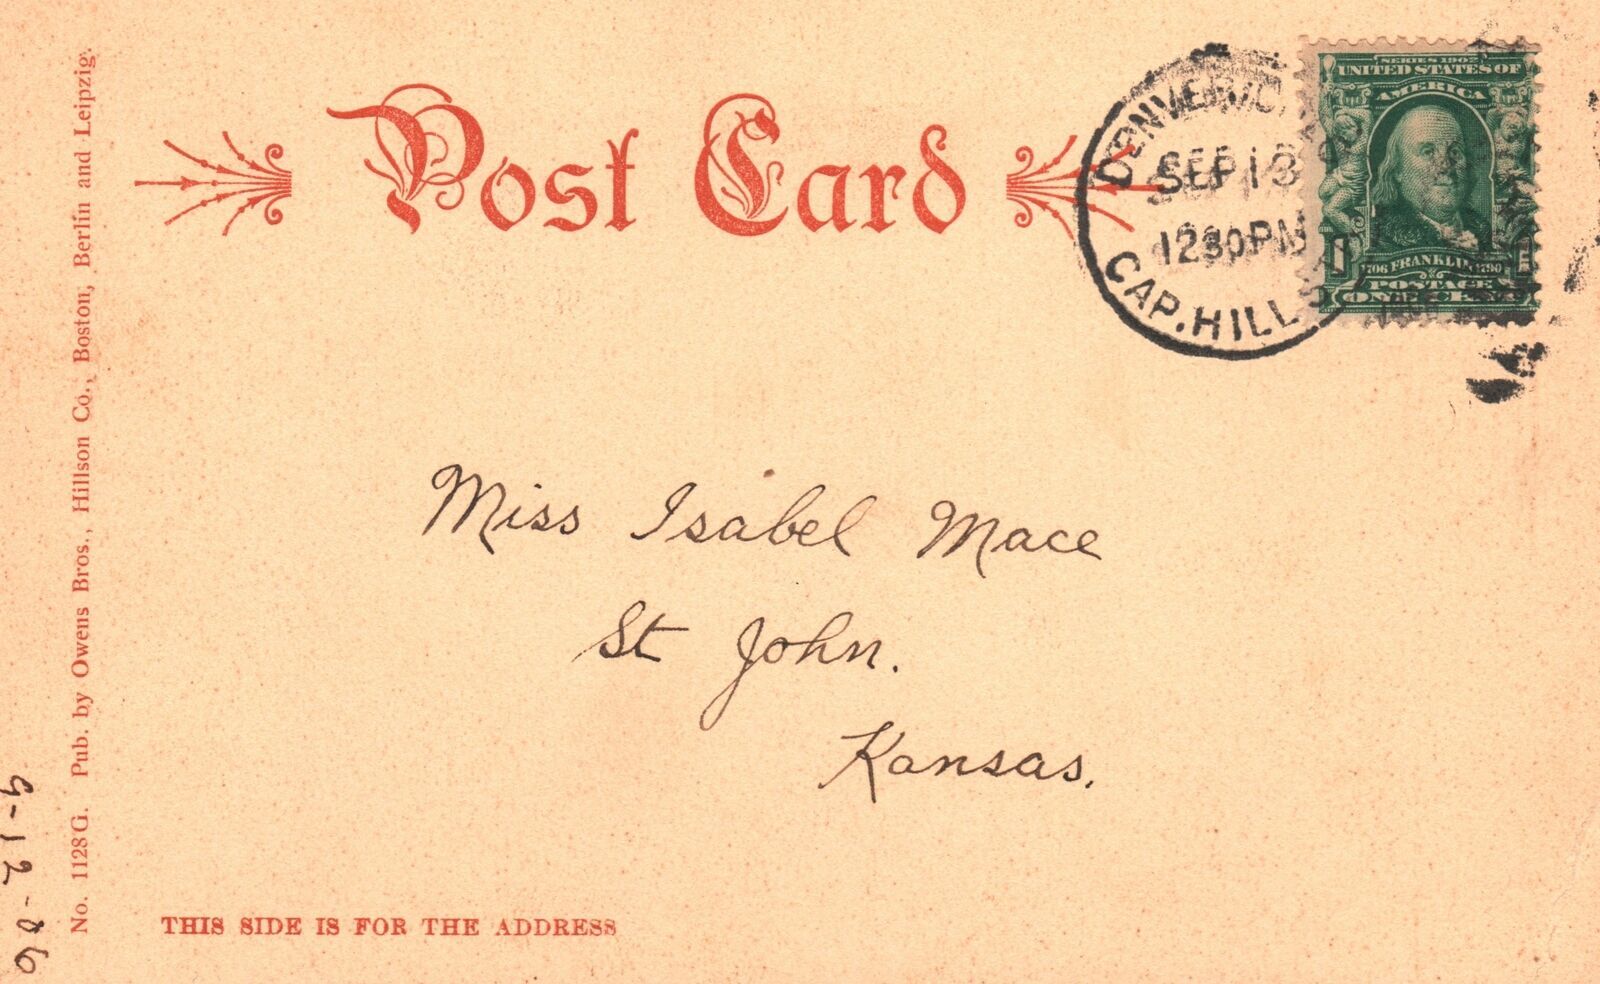 Post Card
DENVER, COLO.
SEP 13
1230PM
CAP. HILL
SERIES 1902
UNITED STATES OF
AMERICA
1706 FRANKLIN 1790
POSTAGE
Miss Isabel Mace
St John.
Kansas.
THIS SIDE IS FOR THE ADDRESS
No. 1128G. Pub. by Owens Bros., Hillson Co., Boston, Berlin and Leipzig.
9-12-06